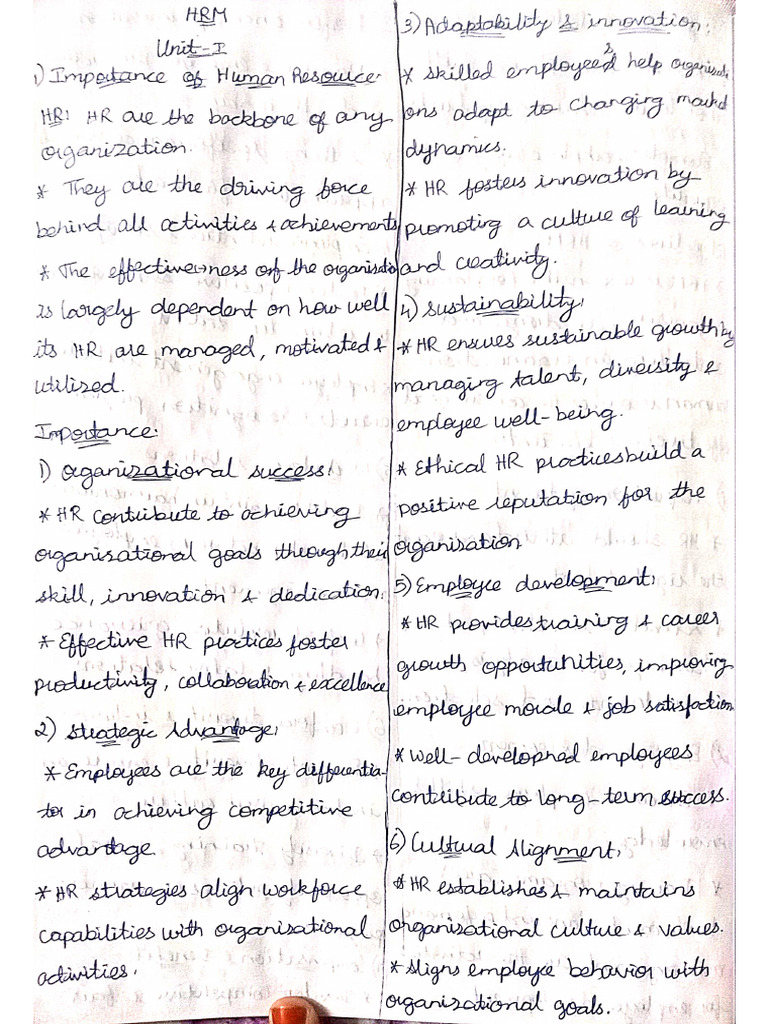 HRM
Unit-I
1) Importance of Human Resource:
HR: HR are the backbone of any
organization.
* They are the driving force
behind all activities & achievements
* The effectiveness of the organisatio
is largely dependent on how well
its HR are managed, motivated &
utilized.
Importance:
1) Organizational success:
* HR contribute to achieving
organisational goals through their
skill, innovation & dedication.
* Effective HR practices foster
productivity, collaboration & excellence
2) Strategic Advantage:
* Employees are the key differentia-
tor in achieving competitive
advantage.
* HR strategies align workforce
capabilities with organisational
activities.
3) Adaptability & innovation:
* skilled employees help organisati
ons adapt to changing market
dynamics.
* HR fosters innovation by
promoting a culture of learning
and creativity.
4) Sustainability:
* HR ensures sustainable growth by
managing talent, diversity &
employee well-being.
* Ethical HR practices build a
positive reputation for the
organisation
5) Employee development:
* HR provides training & career
growth opportunities, improving
employee morale & job satisfaction
* Well-developned employees
contribute to long-term success.
6) Cultural Alignment:
* HR establishes & maintains
organisational culture & values.
* Aligns employee behavior with
organizational goals.